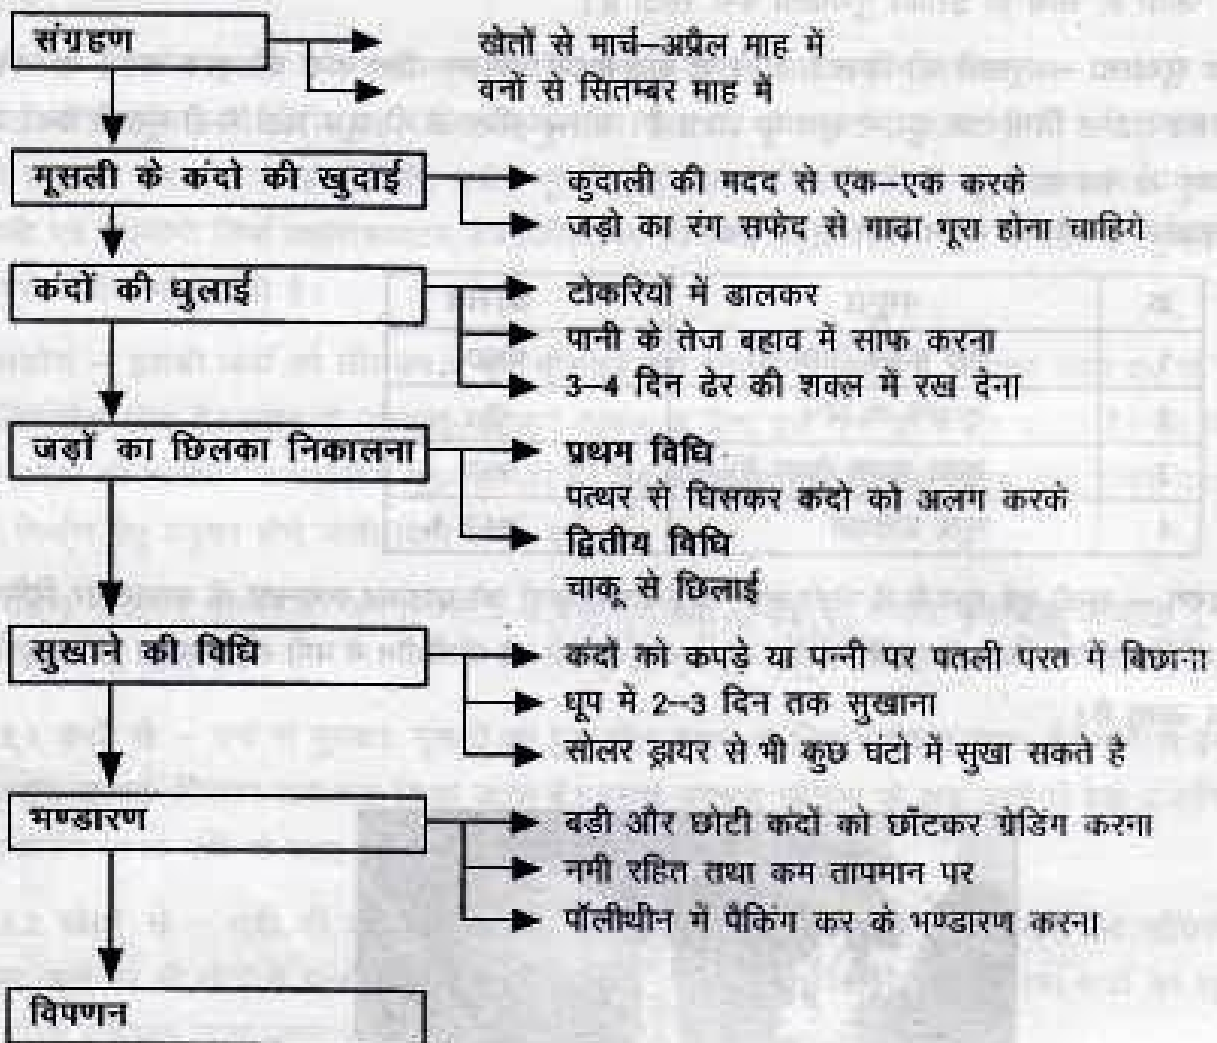 संग्रहण
खेतों से मार्च–अप्रैल माह में
वनों से सितम्बर माह में
मूसली के कंदो की खुदाई
कुदाली की मदद से एक–एक करके
जड़ो का रंग सफेद से गाढ़ा भूरा होना चाहिये
कंदों की धुलाई
टोकरियों में डालकर
पानी के तेज बहाव में साफ करना
3–4 दिन ढेर की शक्ल में रख देना
जड़ों का छिलका निकालना
प्रथम विधि
पत्थर से घिसकर कंदो को अलग करके
द्वितीय विधि
चाकू से छिलाई
सुखाने की विधि
कंदों को कपड़े या पन्नी पर पतली परत में बिछाना
धूप में 2--3 दिन तक सुखाना
सोलर ड्रायर से भी कुछ घंटो में सुखा सकते है
भण्डारण
बडी और छोटी कंदों को छाँटकर ग्रेडिंग करना
नमी रहित तथा कम तापमान पर
पॉलीथीन में पैकिंग कर के भण्डारण करना
विपणन